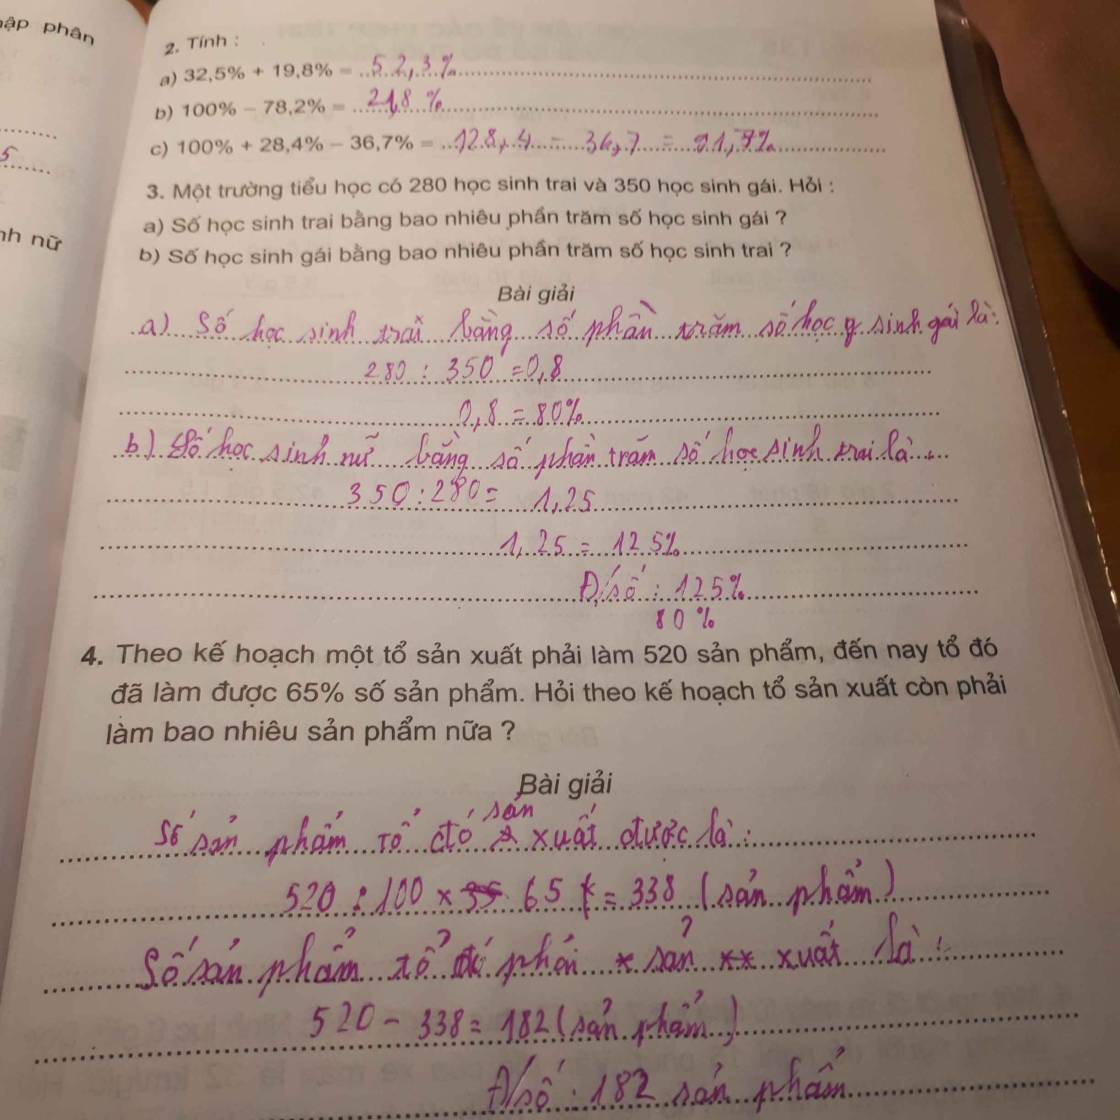 ập phân
5
nh nữ
2. Tính :
a) 32,5% + 19,8% = 52,3%
b) 100% – 78,2% = 21,8 %
c) 100% + 28,4% – 36,7% = 128,4 – 36,7 = 91,7%
3. Một trường tiểu học có 280 học sinh trai và 350 học sinh gái. Hỏi :
a) Số học sinh trai bằng bao nhiêu phần trăm số học sinh gái ?
b) Số học sinh gái bằng bao nhiêu phần trăm số học sinh trai ?
Bài giải
a) Số học sinh trai bằng số phần trăm số học sinh gái là:
280 : 350 = 0,8
0,8 = 80%
b) Số học sinh nữ bằng số phần trăm số học sinh trai là
350 : 280 = 1,25
1,25 = 125%
Đ/số : 125%
80 %
4. Theo kế hoạch một tổ sản xuất phải làm 520 sản phẩm, đến nay tổ đó
đã làm được 65% số sản phẩm. Hỏi theo kế hoạch tổ sản xuất còn phải
làm bao nhiêu sản phẩm nữa ?
Bài giải
Số sản phẩm tổ đó sản xuất được là :
520 : 100 x 65 = 338 (sản phẩm)
Số sản phẩm tổ phải sản xuất là :
520 – 338 = 182 (sản phẩm)
Đ/số : 182 sản phẩm